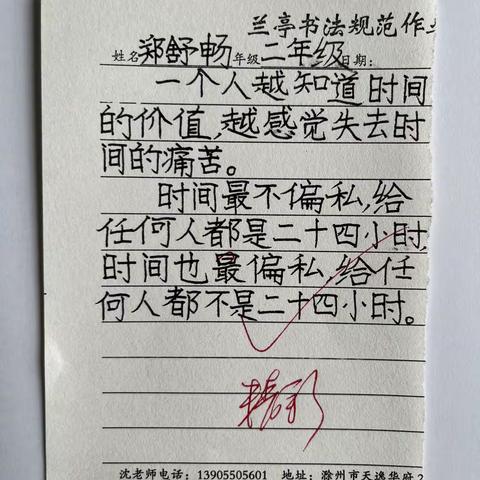 兰亭书法规范作
姓名郑舒畅年级二年级日期:
一个人越知道时间
的价值,越感觉失去时
间的痛苦。
时间最不偏私,给
任何人都是二十四小时,
时间也最偏私,给任
何人都不是二十四小时。
精彩
沈老师电话:13905505601 地址:滁州市天逸华府2